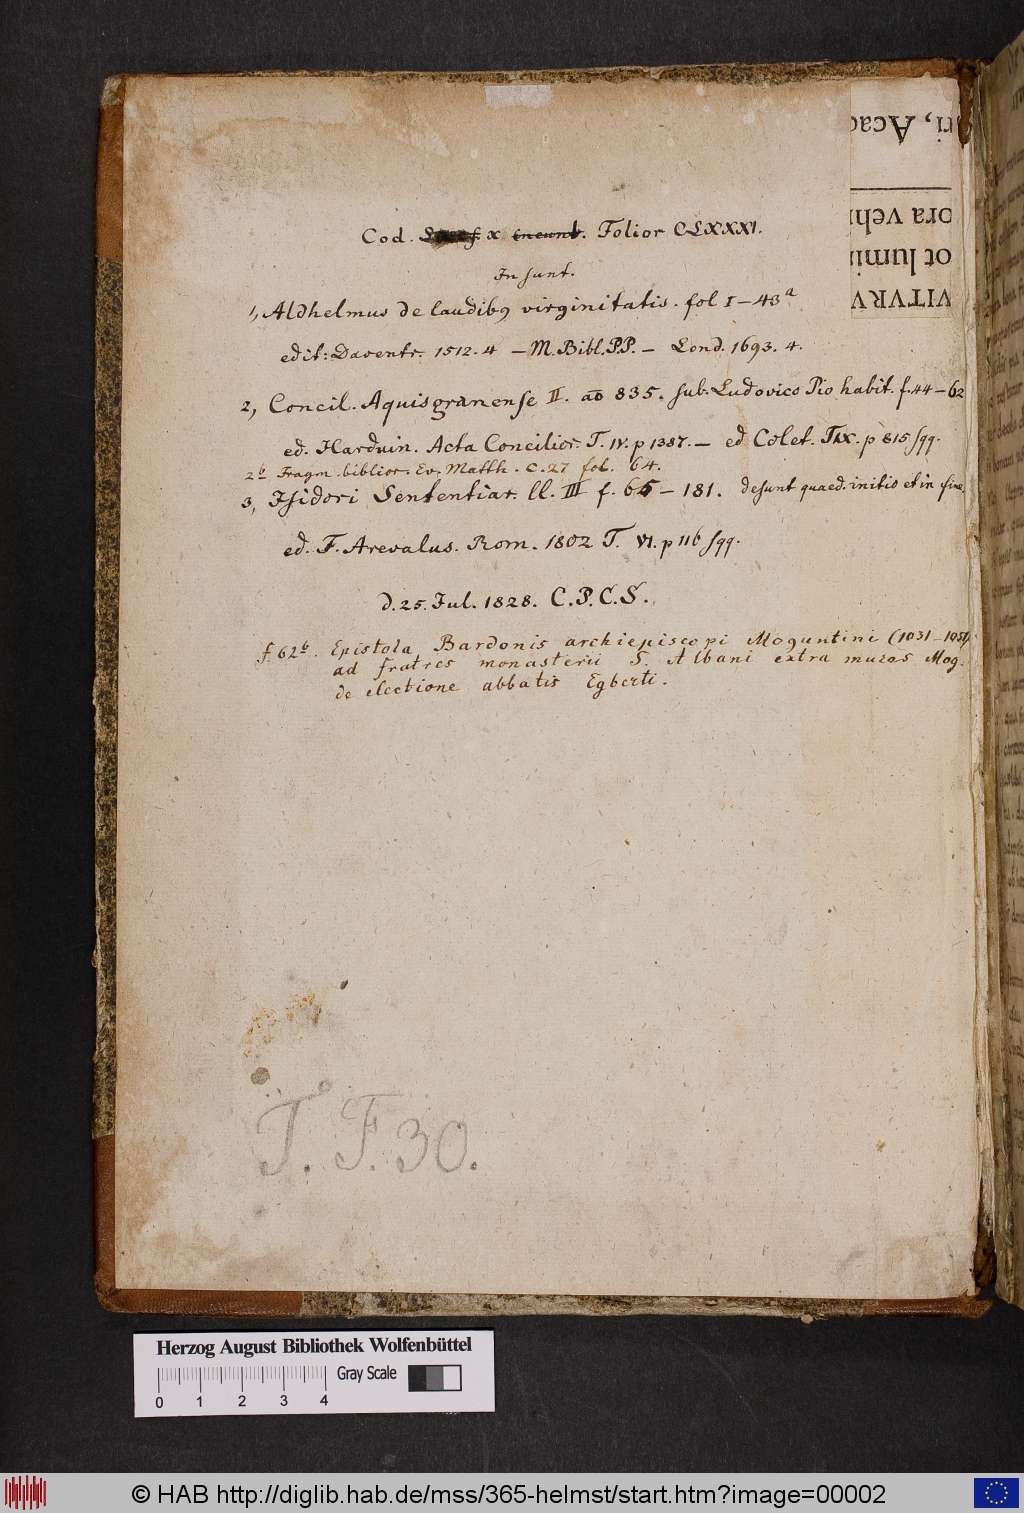 ri, Acad
ora veh
ot lumin
VITVRV
Cod. x incunb. Folior CLXXXI.
Insunt.
1, Aldhelmus de laudibꝯ virginitatis. fol I – 43a
edit: Daventr. 1512. 4 – M. Bibl. P.P. – Lond. 1693. 4.
2, Concil. Aquisgranense II. aō 835. sub. Ludovico Pio habit. f. 44 – 62
ed. Harduin. Acta Concilior. T. IV. p 1387. – ed Colet. T. IX. p 815 sqq.
2b Fragm. biblior. Ev. Matth. c. 27 fol. 64.
3, Isidori Sententiar. ll. III f. 65 – 181. desunt quaed. initio et in fine
ed. F. Arevalus. Rom. 1802 T. VI. p 116 sqq.
d. 25. Jul. 1828. C. P. C. S.
f. 62b. Epistola Bardonis archiepiscopi Moguntini (1031–1051)
ad fratres monasterii S. Albani extra muros Mog.
de electione abbatis Egberti.
T. F. 30.
Herzog August Bibliothek Wolfenbüttel
Gray Scale
0 1 2 3 4
© HAB http://diglib.hab.de/mss/365-helmst/start.htm?image=00002